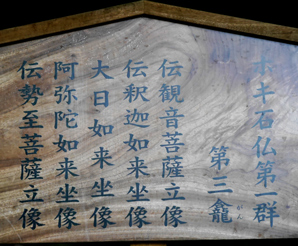 ホキ石仏第一群
第三龕
伝観音菩薩立像
伝釈迦如来坐像
大日如来坐像
阿弥陀如来坐像
伝勢至菩薩立像